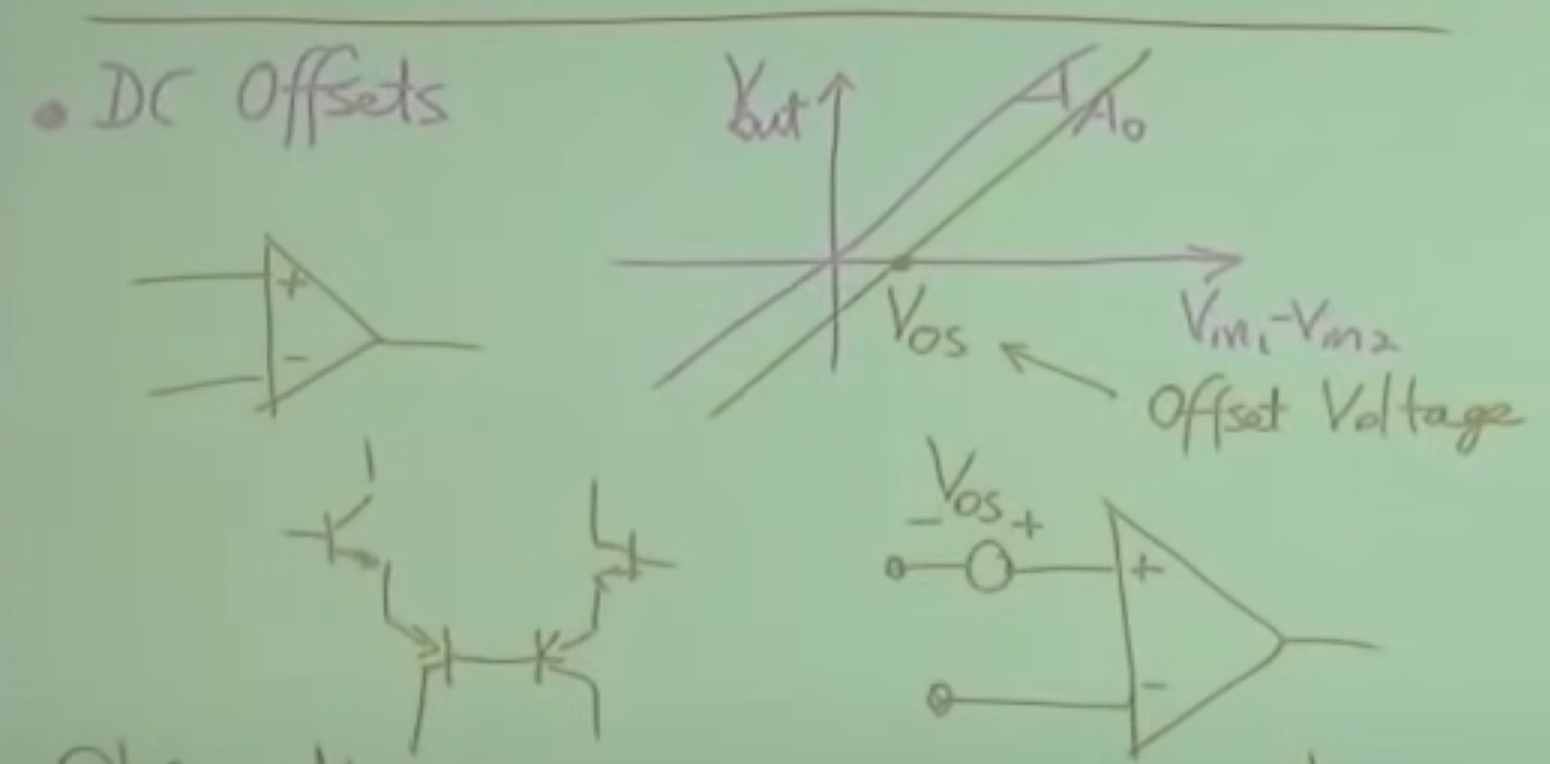 • DC Offsets
Vout
A0
+
-
VOS
Vin1-Vin2
Offset Voltage
VOS
- +
+
-